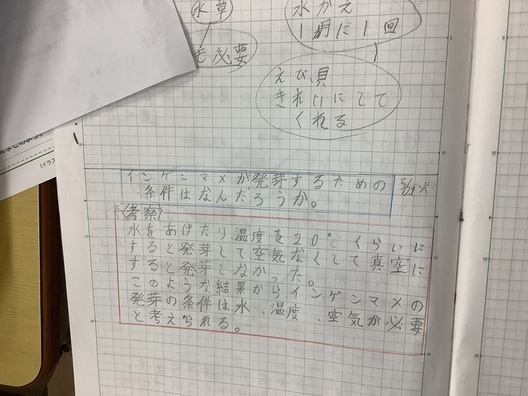 水草
必要
水かえ
1月に1回
えび、貝
きれいにして
くれる
インゲンマメが発芽するための
条件はなんだろうか。
〈考察〉
水をあげたり温度を20℃くらいに
すると発芽して空気なくして真空に
すると発芽してなかった。
このような結果からインゲンマメの
発芽の条件は水、温度、空気が必要
と考えられる。